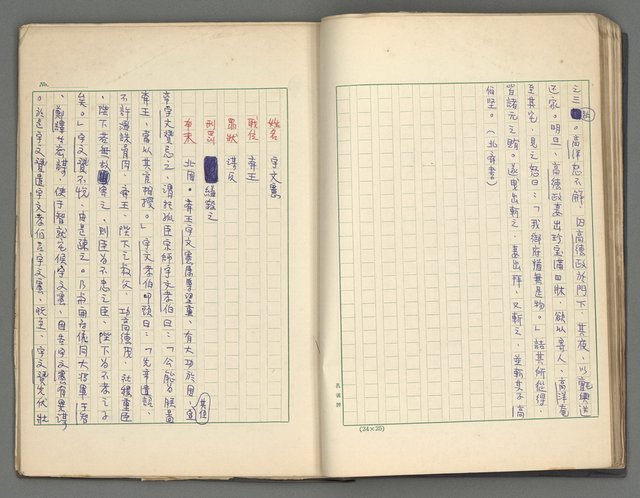 之三。高洋怒不解，囚高德政於門下，其夜，以氈輿送
還家。明旦，高德政妻出珍寶滿四牀，欲以寄人，高洋奄
至其宅，見之怒曰：「我御府猶無是物。」詰其所從得，
皆諸元之賂。遂曳出斬之，妻出拜，又斬之，並斬其子高
伯堅。（北齊書）
(24×25)
No.
姓名 宇文憲
職位 齊王
罪狀 謀反
刑罰 縊殺之
本末 北周。齊王宇文憲屬尊望重，有大功於國，宣
帝宇文贇忌之，謂
宇文孝伯曰：「公能為朕圖
齊王，當以其官相授。」宇文孝伯叩頭曰：「先帝遺詔，
不許濫誅骨肉，齊王，陛下之叔父，功高德茂，社稷重臣
，陛下若無故害之，則臣為不忠之臣，陛下為不孝之子
矣。」宇文贇不悅，由是疎之。乃與開府儀同大將軍于智
、鄭譯等密謀，使于智就宅候宇文憲，因告宇文憲有異謀
。於是宇文贇遣宇文孝伯召宇文憲，既至，宇文贇先伏壯
其位